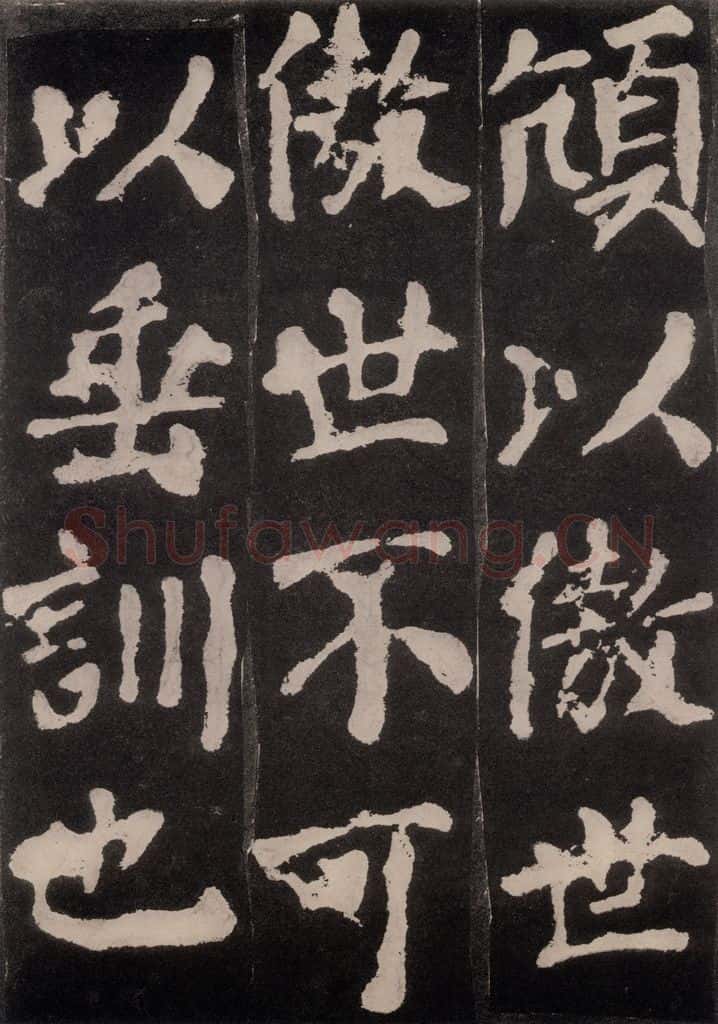 頏以傲世
傲世不可
以垂訓也
Shufawang.CN